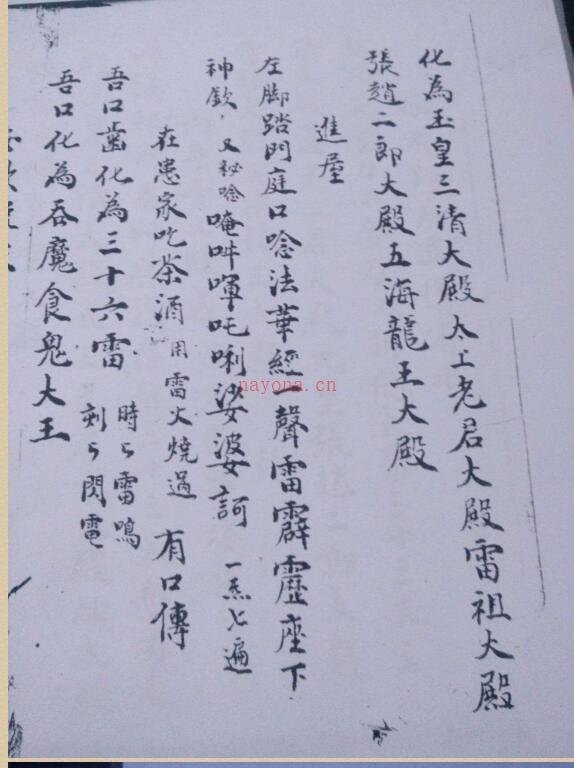 化為玉皇三清大殿太上老君大殿雷祖大殿
張趙二郎大殿五海龍王大殿
進屋
左脚踏門庭口唸法華經一聲雷霹靂座下
神欽又秘唸唵吽㖶吒唎娑婆訶 一炁七遍
在患家吃茶酒用雷火燒過 有口傳
吾口齒化為三十六雷 時々雷鳴 刻々閃電
吾口化為吞魔食鬼大王
nayona.cn